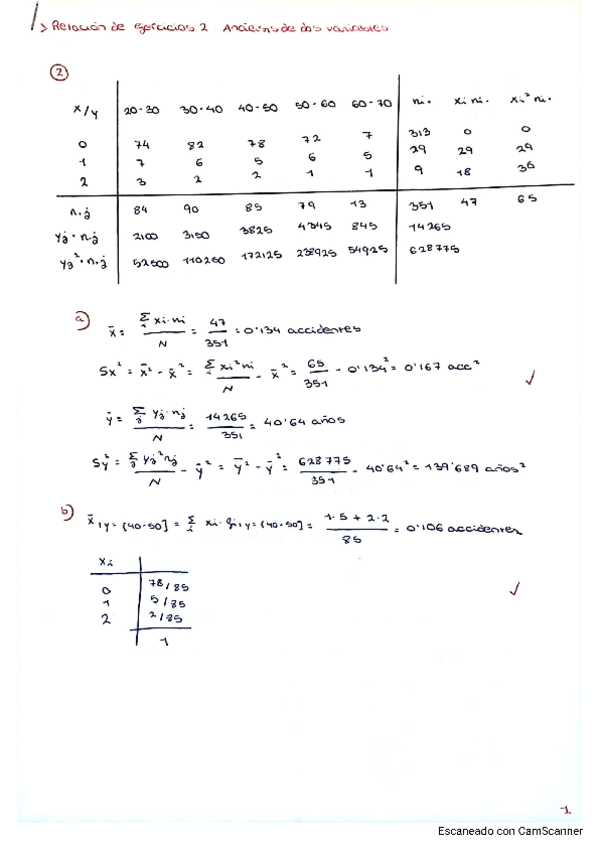 > Relación de ejercicios 2. Análisis de dos variables
2
x/y 20-30 30-40 40-50 50-60 60-70 ni· xi ni· xi² ni·
0 74 82 78 72 7 313 0 0
1 7 6 5 6 5 29 29 29
2 3 2 2 1 1 9 18 36
n·j 84 90 85 79 13 351 47 65
yj · n·j 2100 3150 3825 4345 845 14265
yj² · n·j 52500 110250 172125 238925 54925 628775
a) x̄ = Σi xi·ni / N = 47 / 351 = 0'134 accidentes
Sx² = x̄² - x̄² = Σi xi² ni / N - x̄² = 65 / 351 - 0'134² = 0'167 acc²
ȳ = Σj yj·nj / N = 14265 / 351 = 40'64 años
Sy² = Σj yj² nj / N - ȳ² = ȳ² - ȳ² = 628775 / 351 - 40'64² = 139'689 años²
b) x̄ / y = (40-50] = Σi xi · fi / y = (40-50] = 1·5 + 2·2 / 85 = 0'106 accidentes
xi
0 78/85
1 5/85
2 2/85
1
1
Escaneado con CamScanner